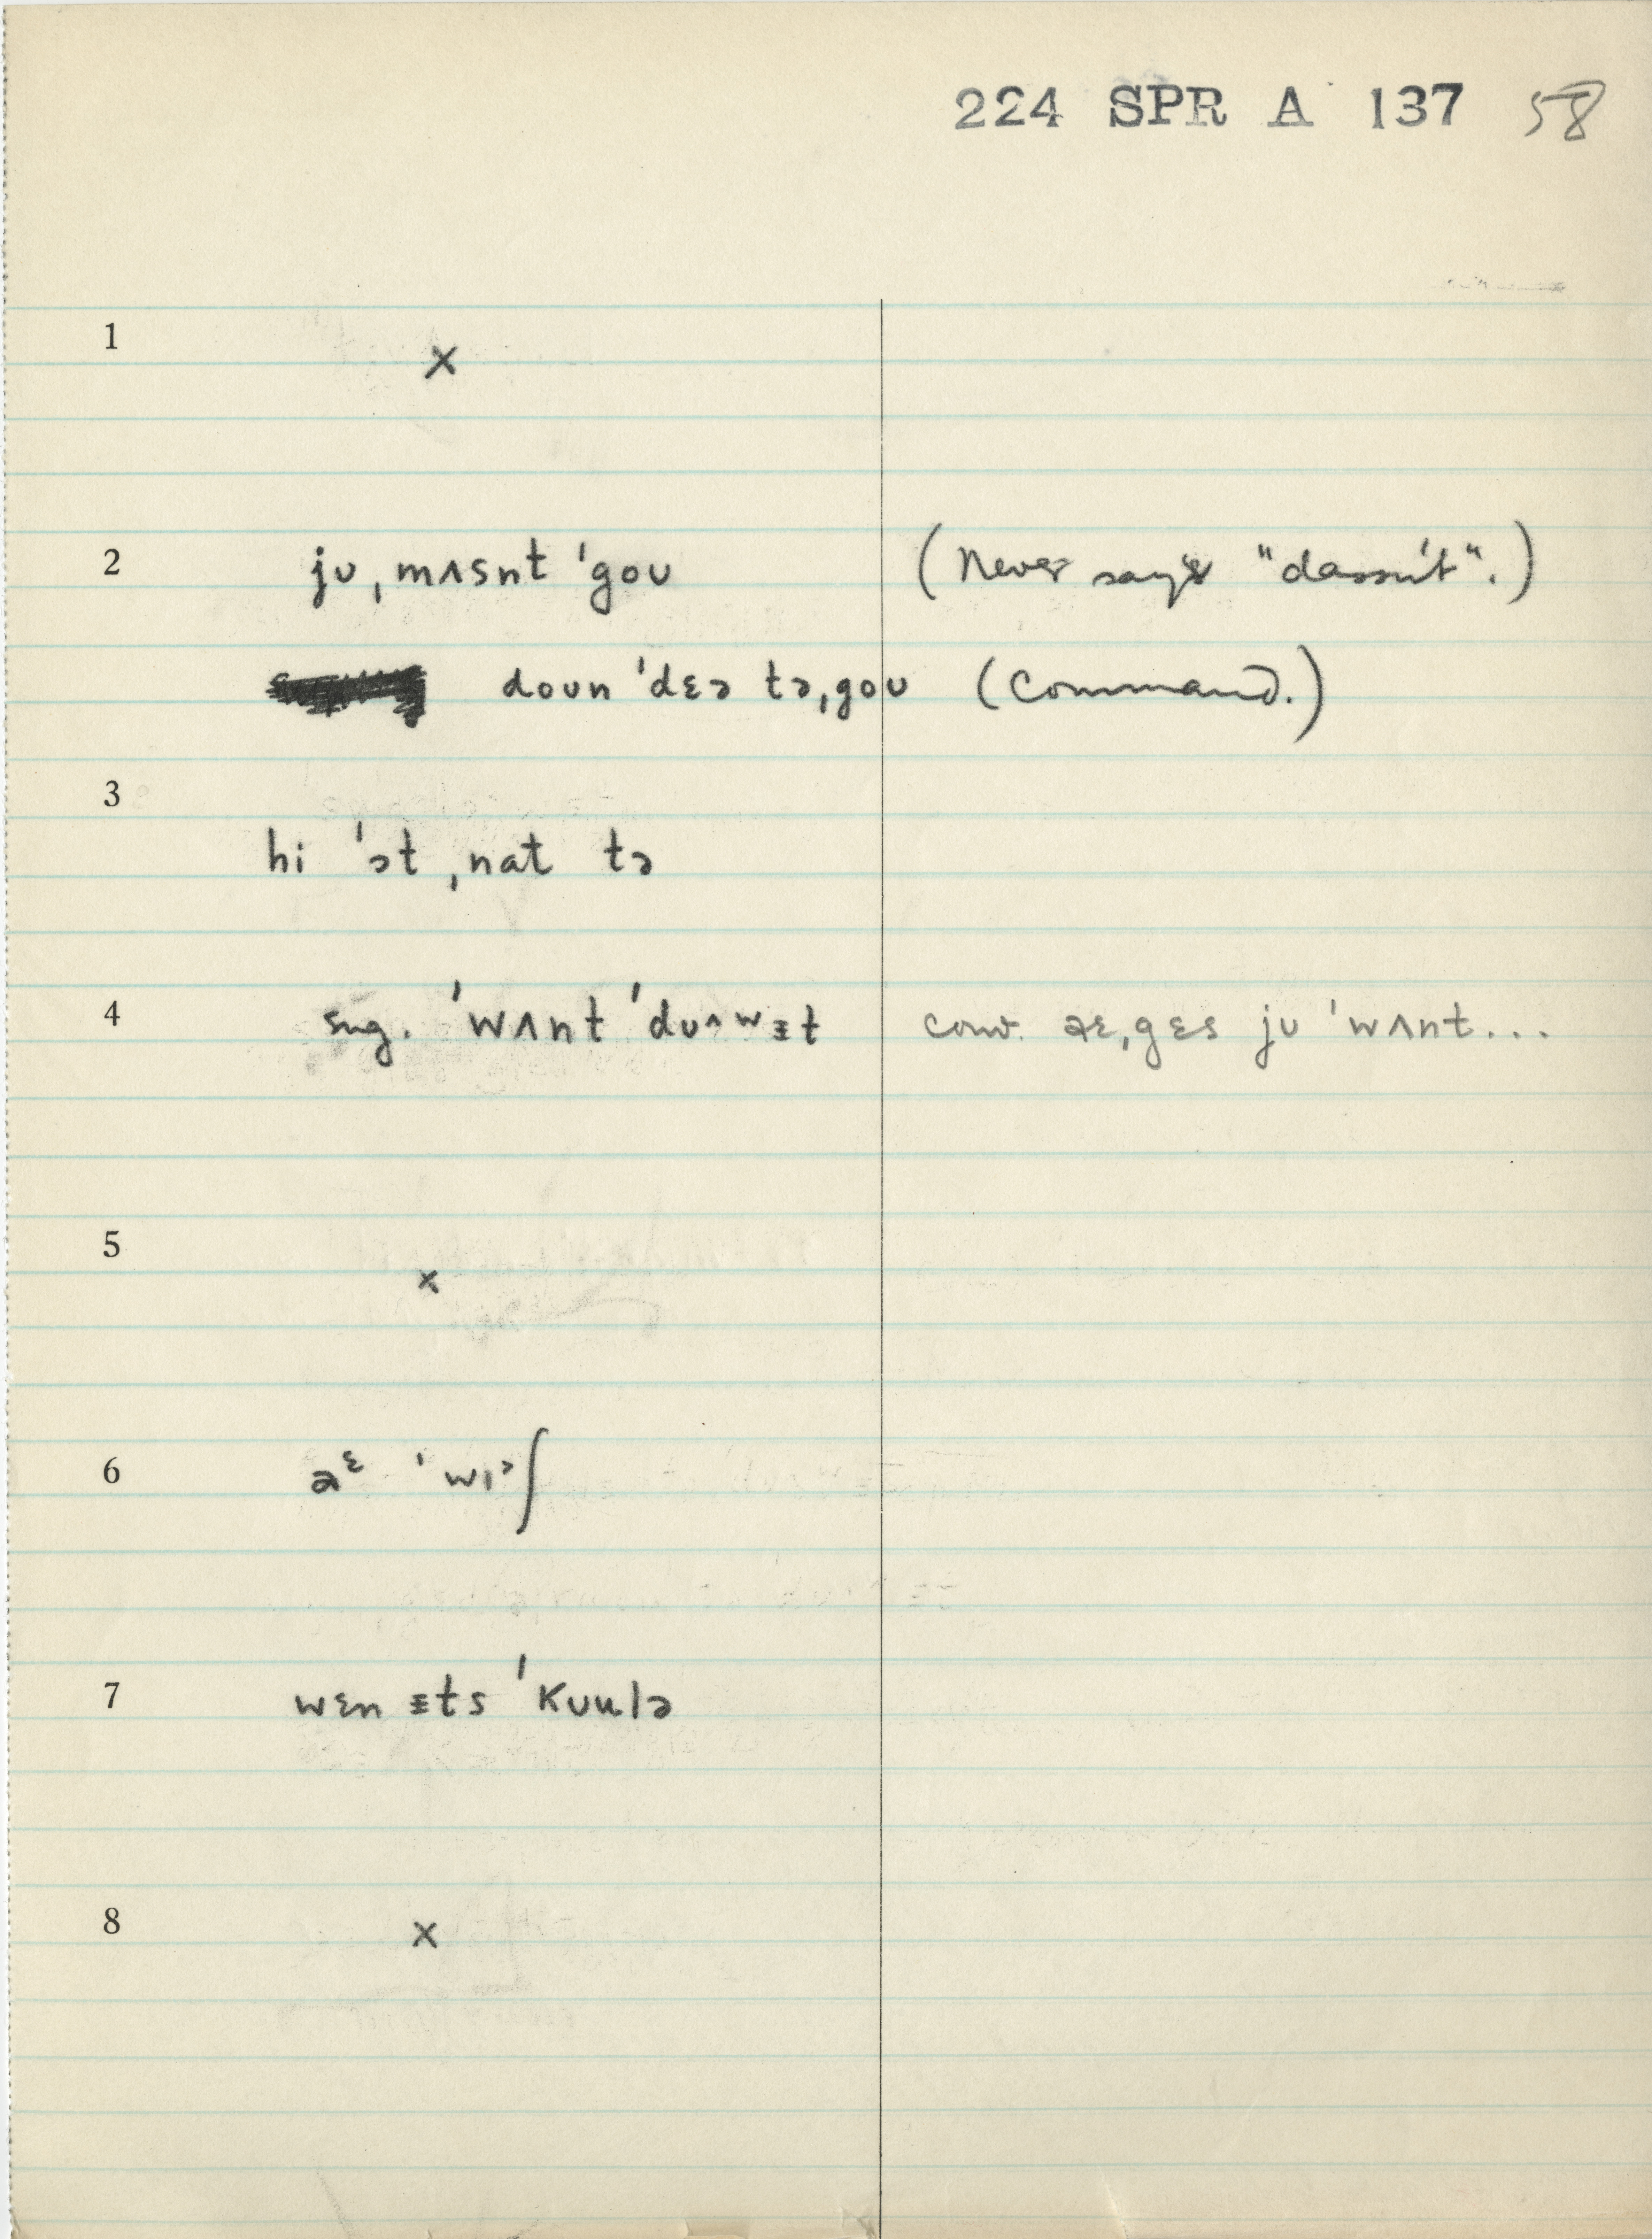 224 SPR A 137 58
1 ×
2 jʊ ˌmʌsnt ˈgoʊ (Never says "dassn't".)
doʊn ˈdɛə təˌgoʊ (Command.)
3
hi ˈɔt ˌnat tə
4 sug. ˈwʌnt ˈduʌwɪt conv. aɛˌgɛs jʊ ˈwʌnt...
5 ×
6 aᵋ ˈwɪᵊʃ
7 wɛn ɪts ˈkʊulə
8 ×